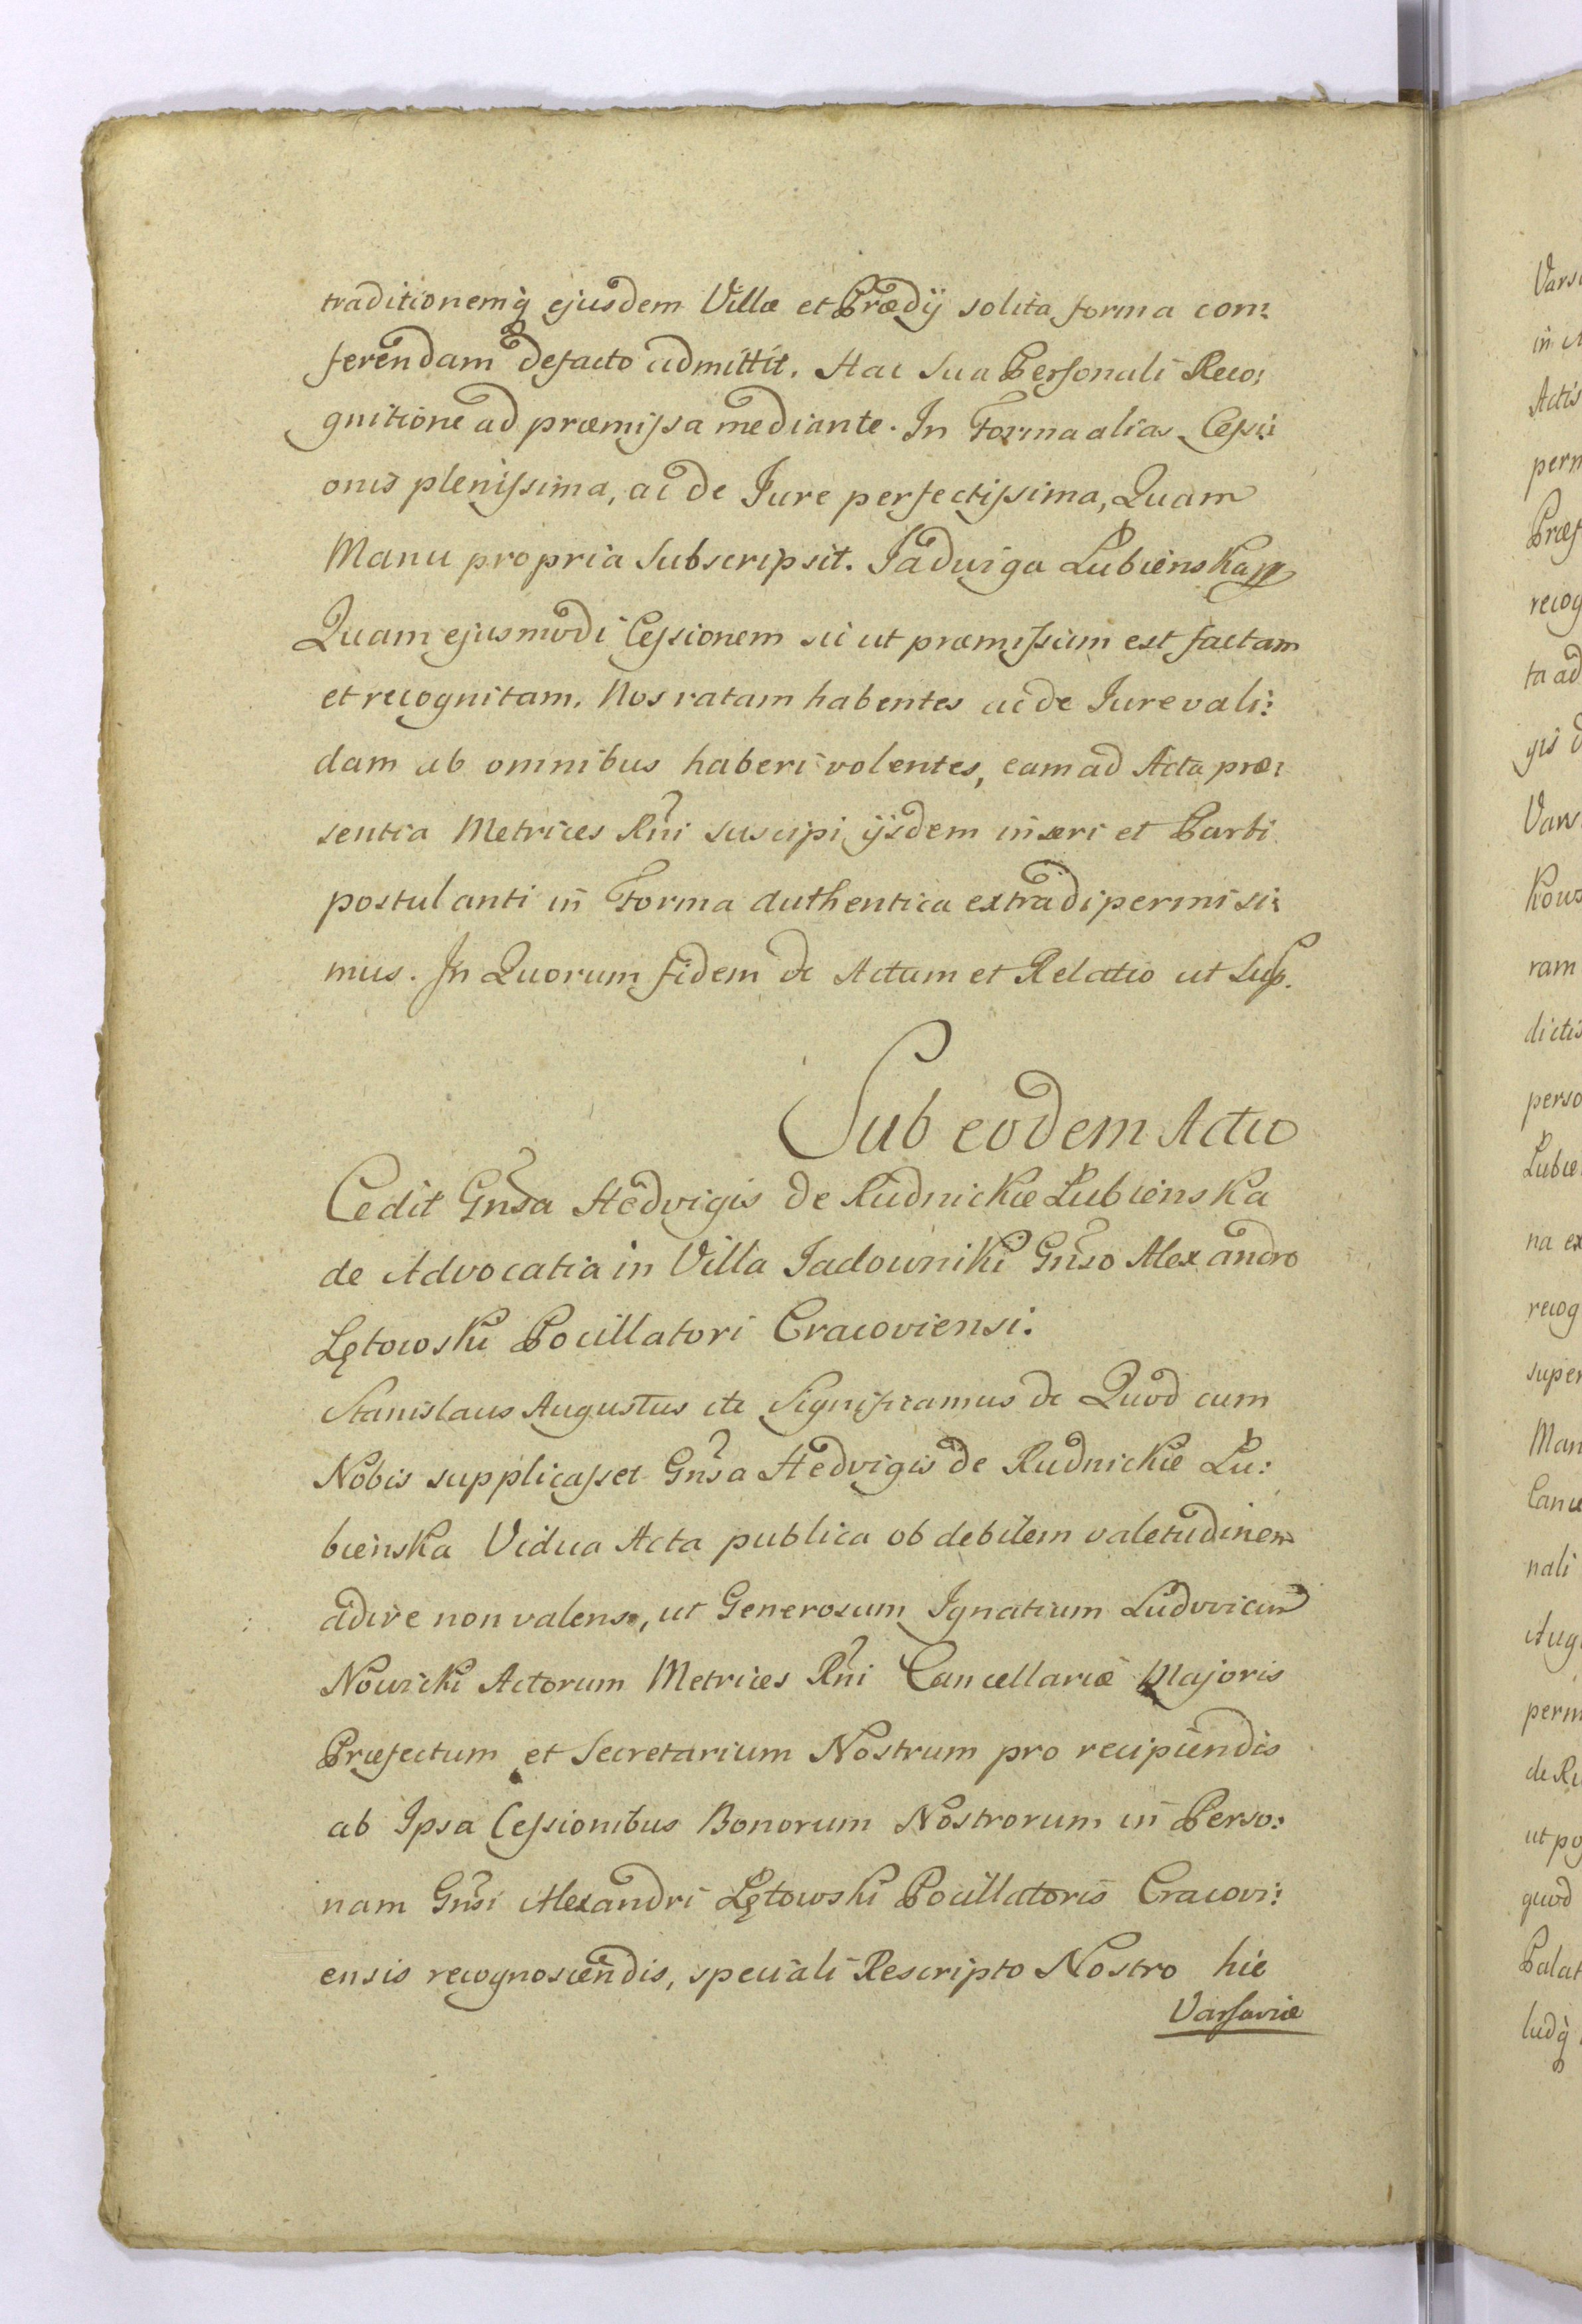 traditionemq̃ ejusdem Villæ et Prædij solita forma con:
ferendam defacto admittit. Hac Sua Personali Reco:
gnitione ad præmissa mediante. In Forma alias Cessi:
onis plenissima, ac de Jure perfectissima, Quam
Manu propria Subscripsit. Jadwiga Łubienska
Quam ejusmodi Cessionem sic ut præmissum est factam
et recognitam. Nos ratam habentes ac de Jure vali:
dam ab omnibus haberi volentes, eam ad Acta præ:
sentia Metrices Rñi suscipi ijsdem inseri et Parti
postulanti in Forma authentica extradi permisi:
mus. In Quorum fidem &c Actum et Relatio ut Sup.
Sub eodem Actu
Cedit Gñsa Hedvigis de Rudnickie Łubienska
de Advocatia in Villa Jadowniki Gñso Alexandro
Łętowski Pocillatori Cracoviensi.
Stanislaus Augustus etc Significamus &c Quod cum
Nobis supplicasset Gñsa Hedvigis de Rudnickie Łu:
bienska Vidua Acta publica ob debilem valetudinem
adire non valens, ut Generosum Ignatium Ludovicum
Nowicki Actorum Metrices Rñi Cancellariæ Majoris
Præfectum et Secretarium Nostrum pro recipiendis
ab Ipsa Cessionibus Bonorum Nostrorum in Perso:
nam Gñsi Alexandri Łętowski Pocillatoris Cracovi:
ensis recognoscendis, speciali Rescripto Nostro hic
Varsaviæ